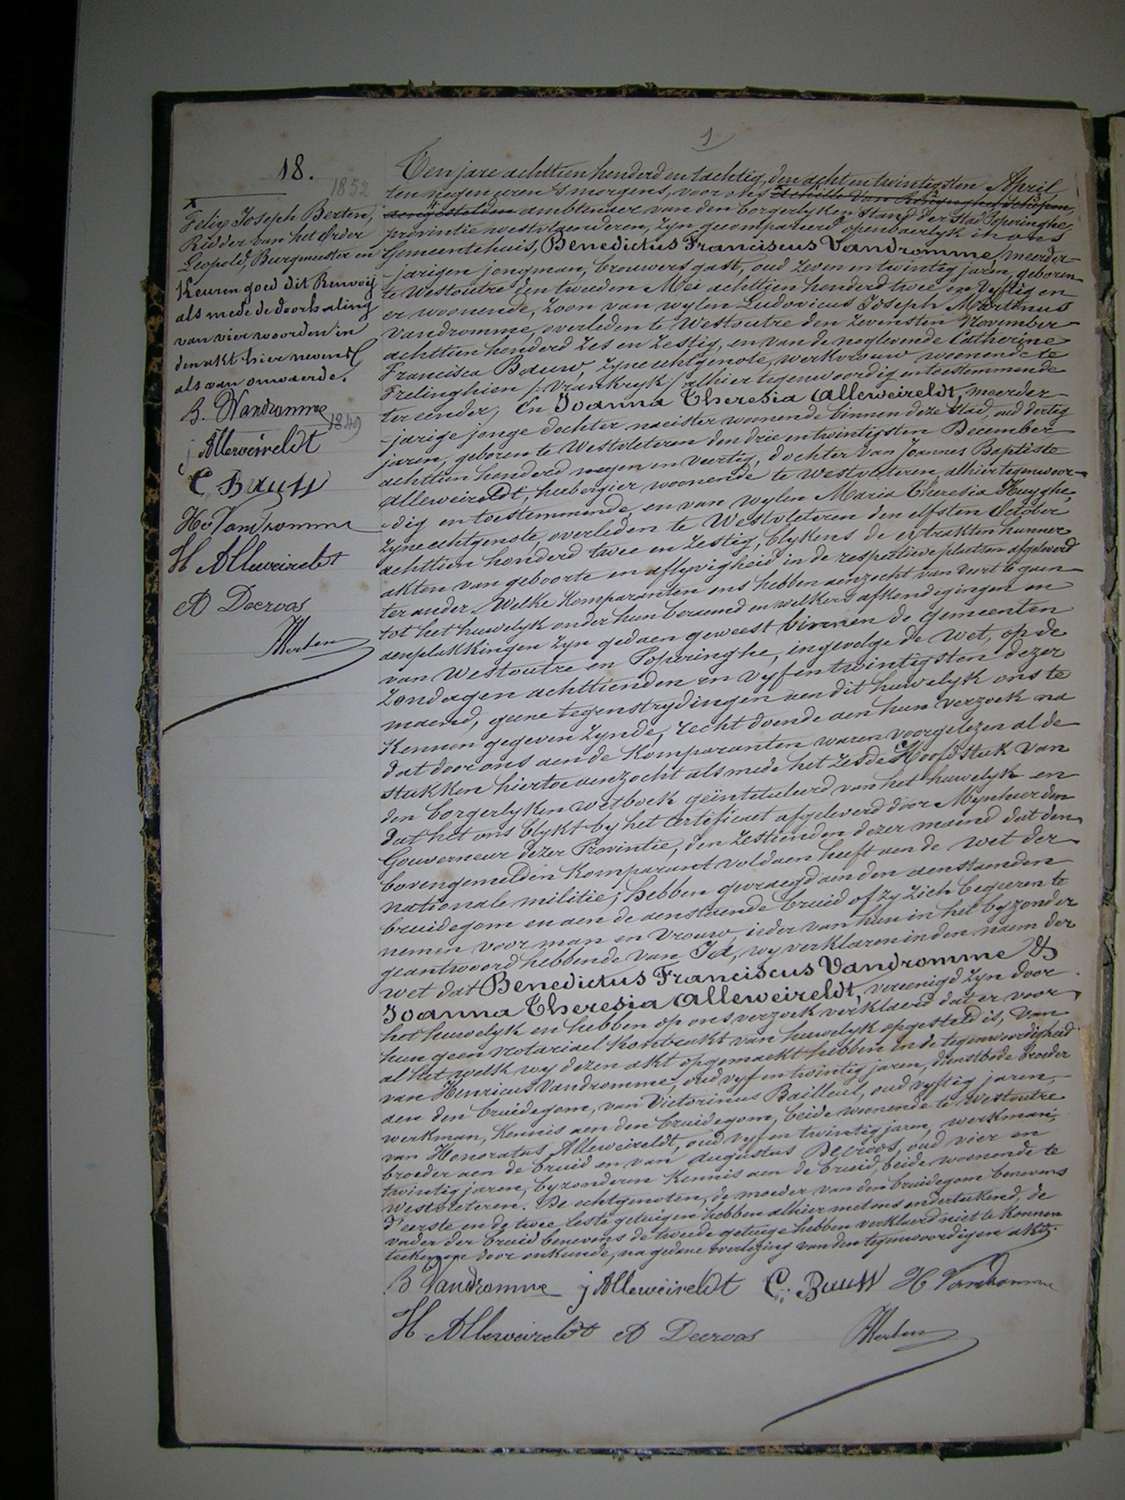 1
18.
1852
x
Felix Joseph Berten,
Ridder van het Order
Leopold, Burgmeester en
Keuren goed dit Renvooij
als mede de doorhaling
van vier woorden in
den akt hier nevens
als van onwaerde.
B. Vandromme
1849
j Alleweireldt
C. Bauw
H. Vandromme
H Alleweireldt
A Decroos
Berten
Ten jare achttien honderd en tachtig, den acht en twintigsten April
ten negen uren 's morgens, voor ons
ambtenaer van den borgerlyken stand der stad Poperinghe,
provintie westvlaenderen, zyn gecompareerd openbaerlyk in ons
Gemeentehuis, Benedictus Franciscus Vandromme, meerder-
jarigen jongman, brouwersgast, oud zeven en twintig jaren, geboren
te Westoutre den tweeden Mei achttien honderd twee en vyftig en
er woonende, zoon van wylen Ludovicus Joseph Martinus
Vandromme, overleden te Westoutre den zevensten November
achttien honderd zes en zestig, en van de noglevende Catherine
Francisca Bauw, zyne echtgenote, werkvrouw woonende te
Frelinghien (Vrankryk) alhier tegenwoordig en toestemmende
ter eender, En Joanna Theresia Alleweireldt, meerder-
jarige jonge dochter naeister woonende binnen deze stad, oud dertig
jaren, geboren te Westvleteren den drie en twintigsten December
achttien honderd negen en veertig, dochter van Joannes Baptiste
Alleweireldt, herbergier woonende te Westvleteren, alhier tegenwoor-
dig en toestemmende, en van wylen Maria Theresia Huyghe,
zyne echtgenote overleden te Westvleteren den elfsten October
achttien honderd twee en zestig, blykens de extrakten hunner
akten van geboorte en aflyvigheid in de respective plaetsen afgeleverd
ter ander. Welke komparanten ons hebben aenzocht van voort te gaen
tot het huwelyk onder hun beraemd en welkers afkondigingen en
aenplakkingen zyn gedaen geweest binnen de gemeenten
van Westoutre en Poperinghe, ingevolge de wet, op de
zondagen achttienden en vyf en twintigsten dezer
maend, geene tegenstrydingen aen dit huwelyk ons te
kennen gegeven zynde, recht doende aen hun verzoek na
dat door ons aen de komparanten waren voorgelezen al de
stukken hiertoe aenzocht als mede het zesde Hoofdstuk van
den borgerlyken wetboek geïntituleerd van het huwelyk en
dat het ons blykt by het certificaet afgeleverd door Mynheer den
Gouverneur dezer Provintie, den zestienden dezer maend dat den
bovengemelden komparant voldaen heeft aen de wet der
nationale militie; hebben gevraegd aen den aenstaenden
bruidegom en aen de aenstaende bruid of zy zich begeeren te
nemen voor man en vrouw, ieder van hun in het byzonder
geantwoord hebbende van Ja, wy verklaren in den naem der
wet dat Benedictus Franciscus Vandromme &
Joanna Theresia Alleweireldt, vereenigd zyn door
het huwelyk en hebben op ons verzoek verklaerd dat er voor
hun geen notariael kontrakt van huwelyk opgesteld is, Van
al het welk wy dezen akt opgemaekt hebben in de tegenwoordigheid
van Henricus Vandromme, oud vyf en twintig jaren, dienstbode broeder
aen den bruidegom, van Victorinus Bailleul, oud vyftig jaren,
werkman, kennis aen den bruidegom, beide woonende te Westoutre
van Honoratus Alleweireldt, oud vyf en twintig jaren, werkman,
broeder aen de bruid en van Augustus Decroos, oud vier en
twintig jaren, byzonderen kennis aen de bruid, beide woonende te
Westvleteren. De echtgenoten, de moeder van den bruidegom benevens
d'eerste en de twee leste getuigen hebben alhier met ons onderteekend, de
vader der bruid benevens de tweede getuige hebben verklaerd niet te konnen
teekenen door onkunde, na gedane voorlezing van den tegenwoordigen akt.
B Vandromme j Alleweireldt C. Bauw H Vandromme
H Alleweireldt A Decroos Berten